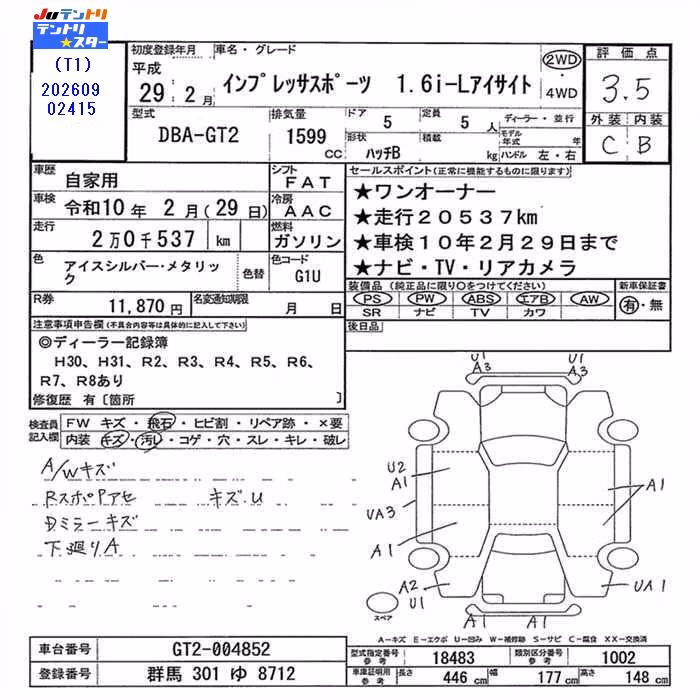 Juテントリ
テントリ
★スター
(T1)
202609
02415
初度登録年月
平成
29 : 2 月
車名・グレード
インプレッサスポーツ 1.6i-Lアイサイト
2WD
・
4WD
評価点
3.5
外装 内装
C B
型式
DBA-GT2
排気量
1599
CC
ドア
5
定員
5 人
形状
ハッチB
積載
kg
ディーラー・並行
モデル年式 年
ハンドル 左・右
車歴
自家用
シフト
FAT
車検
令和10年 2月(29日)
冷房
AAC
走行
2万0千537 km
燃料
ガソリン
色
アイスシルバー・メタリック
色替
色コード
G1U
R券
11,870 円
名変通知期限
月 日
セールスポイント(正常に機能するものに限ります)
★ワンオーナー
★走行20537km
★車検10年2月29日まで
★ナビ・TV・リアカメラ
装備品(純正品に限り○をつけてください)
PS PW ABS エアB AW
SR ナビ TV カワ
新車保証書
有・無
後日品
注意事項申告欄(不具合内容等は具体的に記入して下さい)
◎ディーラー記録簿
H30、H31、R2、R3、R4、R5、R6、
R7、R8あり
修復歴 有〔箇所 〕
検査員
記入欄
FW キズ・飛石・ヒビ割・リペア跡・×要
内装 キズ・汚レ・コゲ・穴・スレ・キレ・破レ
A/Wキズ
RスポPアセ キズ.U
Dミラーキズ
下廻りA
U1
A3
U1
A3
U2
A1
UA3
A1
A1
A2
U1
A1
A1
UA1
スペア
A-キズ E-エクボ U-凹み W-補修跡 S-サビ C-腐食 XX-交換済
車台番号
GT2-004852
登録番号
群馬 301 ゆ 8712
型式指定番号
参考
18483
類別区分番号
参考
1002
車庫証明用
参考
長さ
446 cm
幅
177 cm
高さ
148 cm